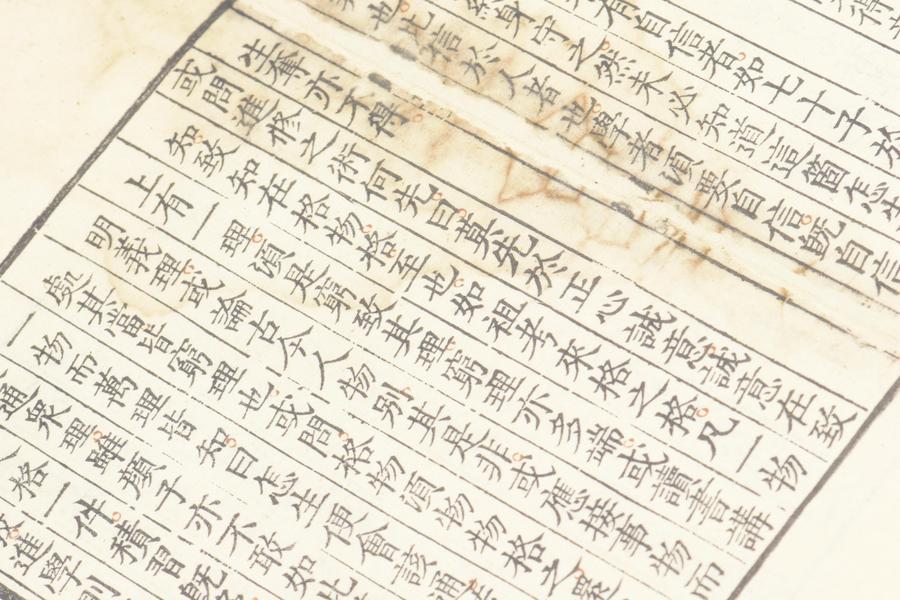 有自信者如七十子於
終身守之然未必知道這箇怎生
也此言於人者也學者須要自信既自信
生奪亦不得
或問進修之術何先曰莫先於正心誠意誠意在致
知致知在格物格至也如祖考來格之格凡一物
上有一理須是窮致其理窮理亦多端或讀書講
明義理或論古今人物別其是非或應接事物而
處其當皆窮理也或問格物須物物格之還
一物而萬理皆知曰怎生便會該通
通衆理雖顏子亦不敢如此
格一件積習既
進學則